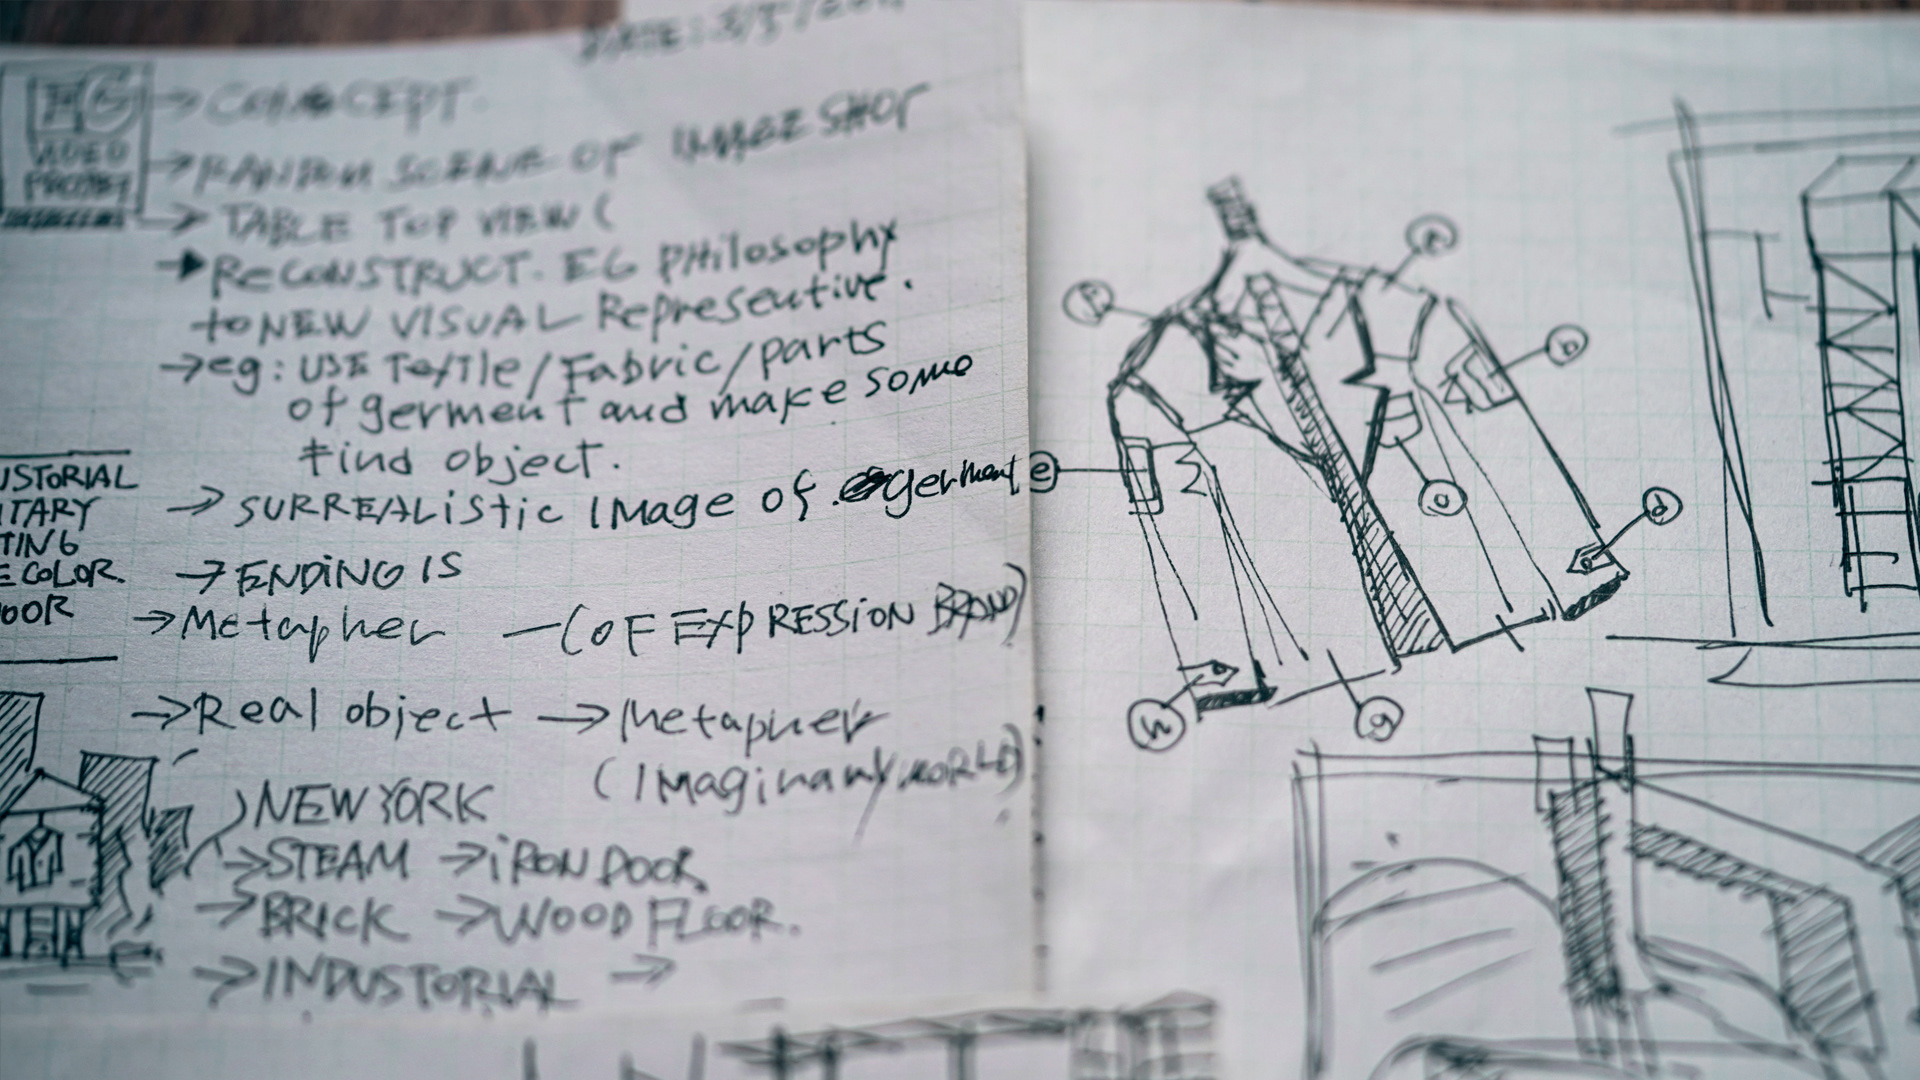 DATE: 3/5/201
EG
VIDEO
→ CONCEPT.
→ RANDOM SCENE OF IMAGE SHOT
→ TABLE TOP VIEW (
→ RECONSTRUCT. EG PHILOSOPHY
to NEW VISUAL Representive.
→ eg: USE TexTile/Fabric/parts
of germent and make some
find object.
→ SURREALiStic IMage OF. germent
→ ENDING IS
→ Metapher — (OF EXPRESSION BRAND)
→ Real object → Metapher
(IMaginary WORLD)
NEW YORK
→ STEAM → iRON DOOR
→ BRICK → WOOD FLOOR.
→ INDUSTORIAL →
USTORIAL
ITARY
TING
E COLOR.
OOR
b
e
a
d
h
g